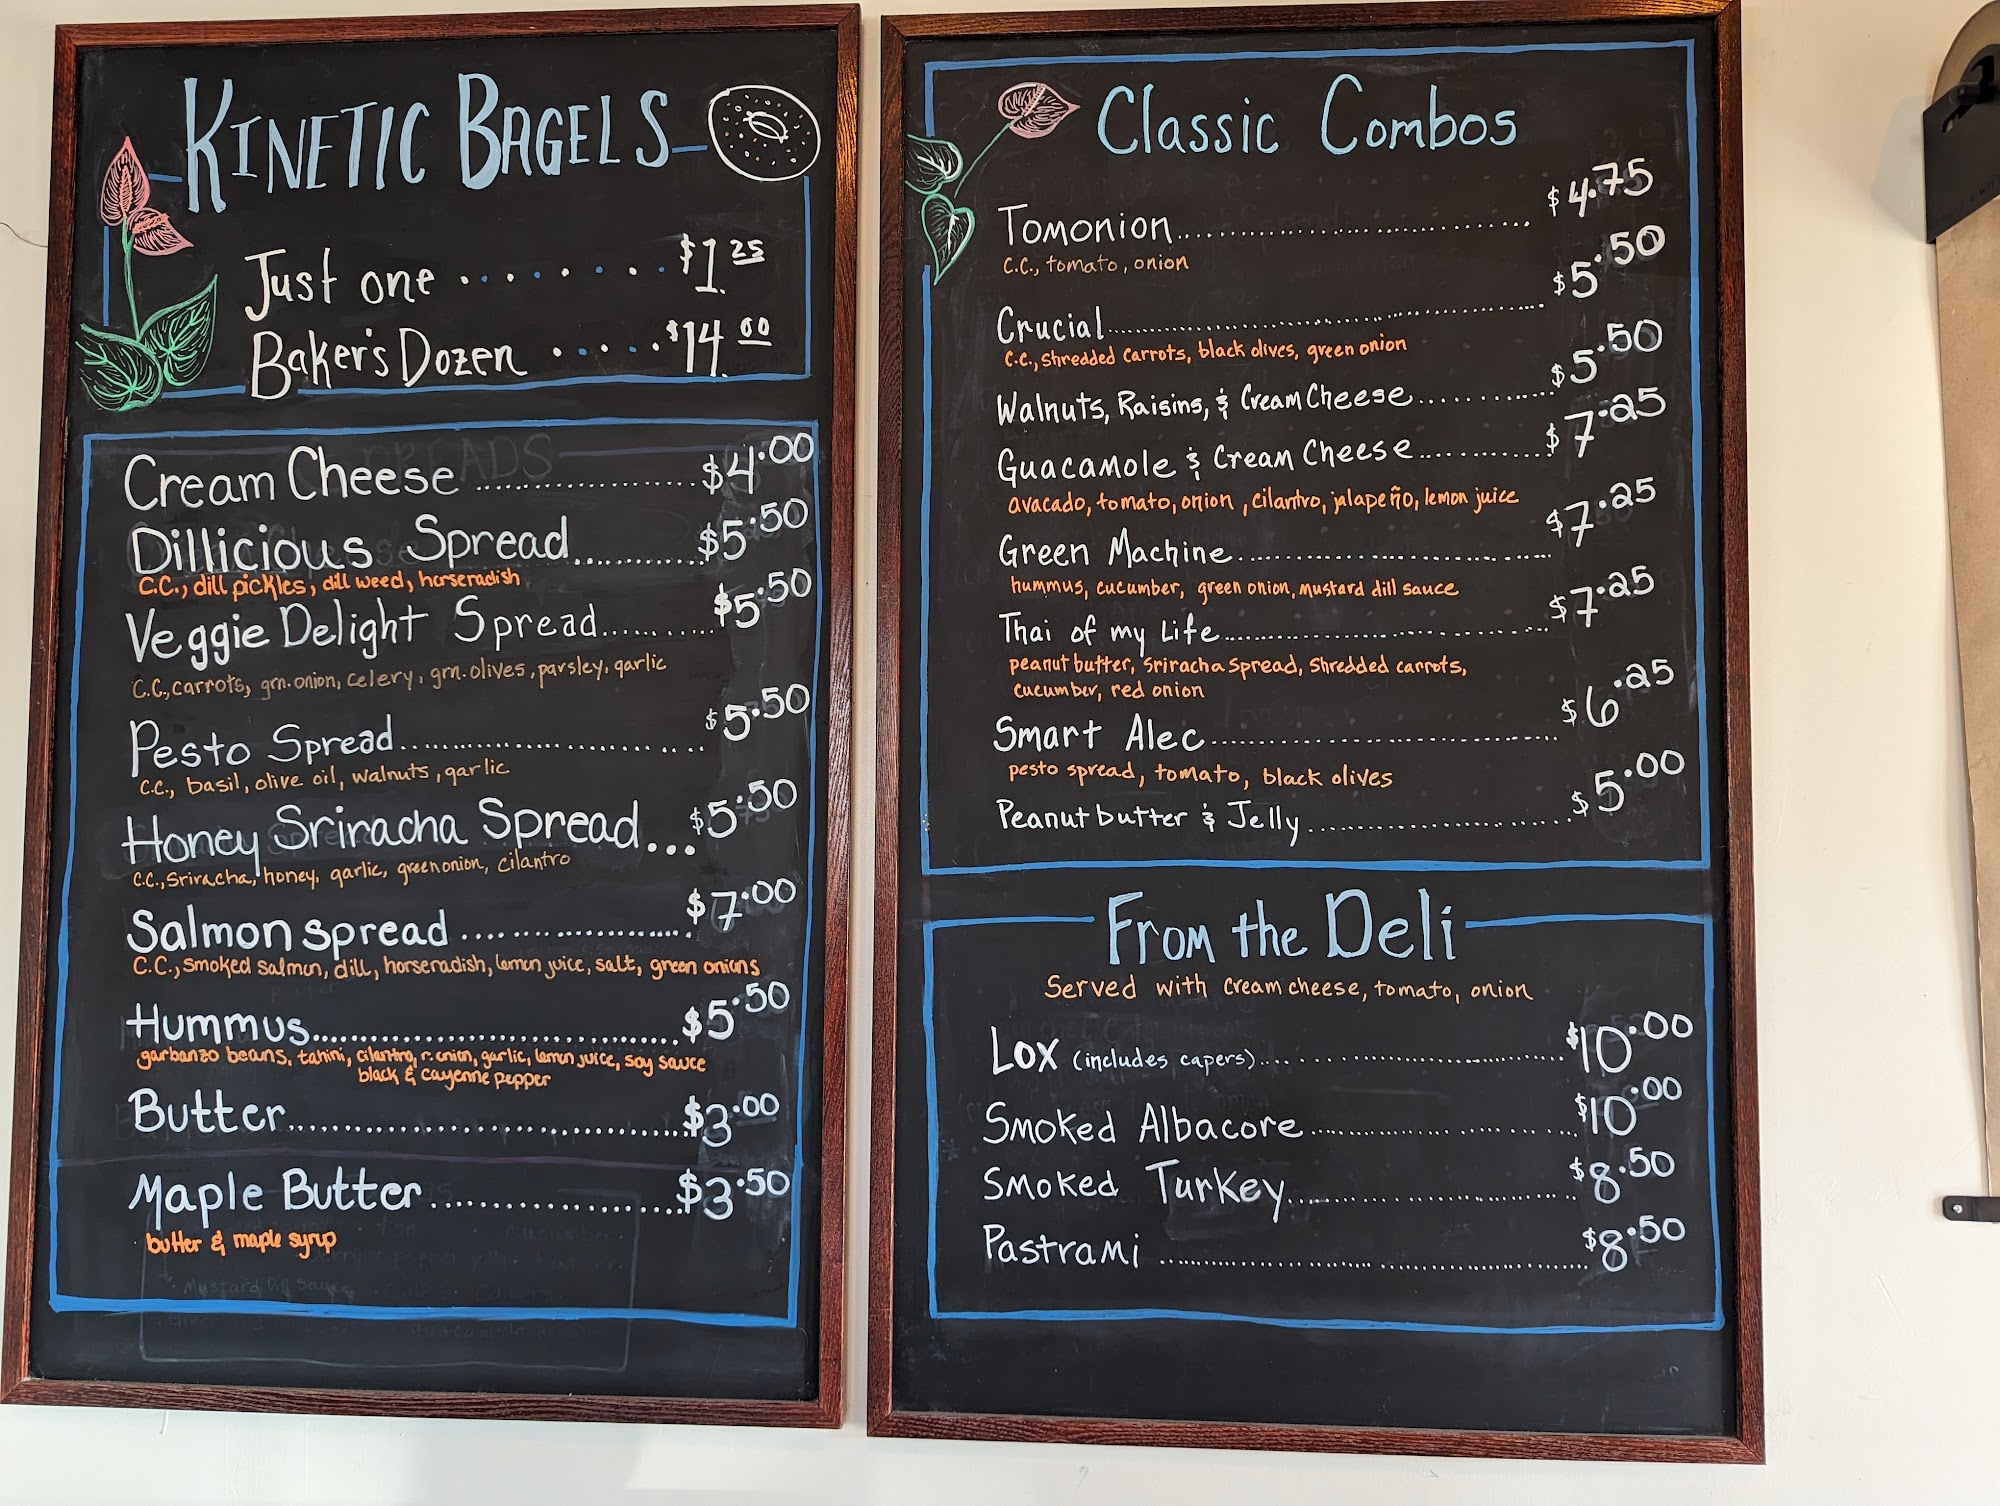 KINETIC BAGELS
Just one . . . . . . . $1.25
Baker's Dozen . . . . . $14.00
Cream Cheese ........................ $4.00
Dillicious Spread ............ $5.50
C.C., dill pickles, dill weed, horseradish
Veggie Delight Spread .......... $5.50
C.C., carrots, grn. onion, celery, grn. olives, parsley, garlic
Pesto Spread ............................ $5.50
C.C., basil, olive oil, walnuts, garlic
Honey Sriracha Spread ... $5.50
C.C., Sriracha, honey, garlic, green onion, cilantro
Salmon spread ........................ $7.00
C.C., smoked salmon, dill, horseradish, lemon juice, salt, green onions
Hummus .................................... $5.50
garbanzo beans, tahini, cilantro, r. onion, garlic, lemon juice, soy sauce
black & cayenne pepper
Butter ...................................... $3.00
Maple Butter ........................ $3.50
butter & maple syrup
Classic Combos
Tomonion .................................... $4.75
C.C., tomato, onion
Crucial .................................... $5.50
C.C., shredded carrots, black olives, green onion
Walnuts, Raisins, & Cream Cheese ............ $5.50
Guacamole & Cream Cheese ............ $7.25
avacado, tomato, onion, cilantro, jalapeño, lemon juice
Green Machine .............................. $7.25
hummus, cucumber, green onion, mustard dill sauce
Thai of my Life .............................. $7.25
peanut butter, Sriracha spread, shredded carrots,
cucumber, red onion
Smart Alec .................................... $6.25
pesto spread, tomato, black olives
Peanut butter & Jelly ........................ $5.00
From the Deli
Served with cream cheese, tomato, onion
Lox (includes capers) .............................. $10.00
Smoked Albacore .............................. $10.00
Smoked Turkey .............................. $8.50
Pastrami .......................................... $8.50